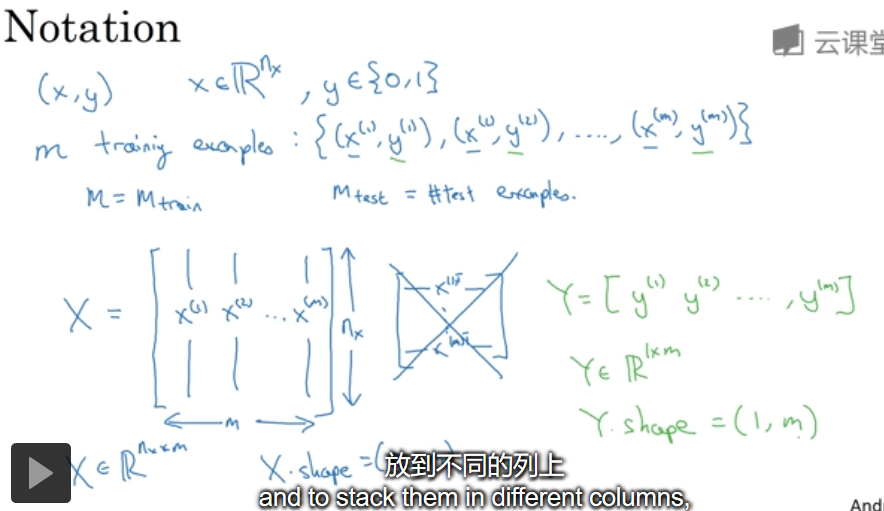 Notation
云课堂
(x,y) x∈ℝ^{n_x}, y∈{0,1}
m training examples : {(x^{(1)},y^{(1)}), (x^{(2)},y^{(2)}), ...., (x^{(m)},y^{(m)})}
M = M_{train} M_{test} = #test examples.
X = [ x^{(1)} x^{(2)} ... x^{(m)} ] n_x
x^{(1)T}
x^{(m)T}
m
Y = [ y^{(1)} y^{(2)} .... , y^{(m)} ]
Y∈ ℝ^{1×m}
Y.shape = (1, m)
X∈ℝ^{n_x×m} X.shape = (
放到不同的列上
and to stack them in different columns,
And